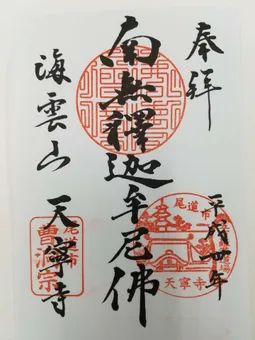 奉拝
平成 年
南無釋迦牟尼佛
海雲山
天寧寺
尾道市
天寧寺
尾道市
曹洞宗